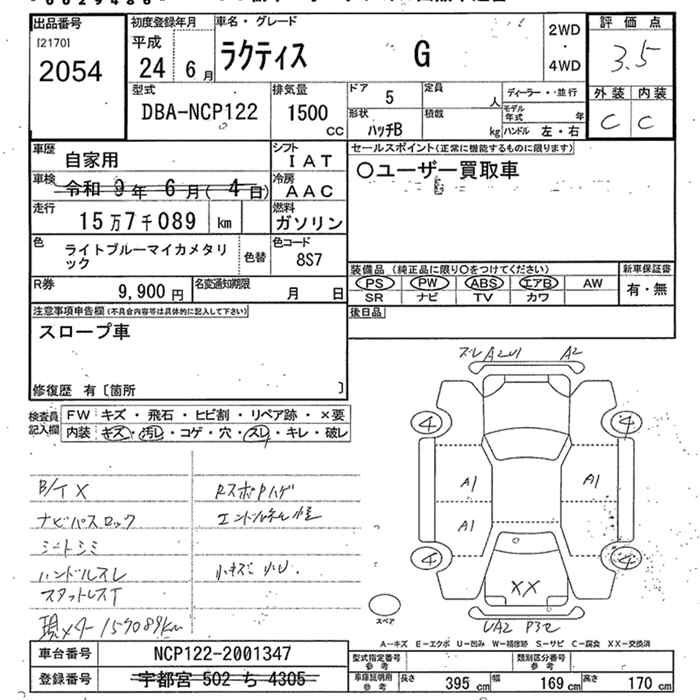 出品番号
[2170]
2054
初度登録年月
平成
24年6月
車名・グレード
ラクティス G
2WD
・
4WD
評価点
3.5
外装 内装
C C
型式
DBA-NCP122
排気量
1500
CC
ドア 5
定員 人
形状 ハッチB
積載 kg
ディーラー・並行
モデル年式 年
ハンドル 左・右
車歴 自家用
シフト IAT
車検 令和 9年 6月( 4日)
冷房 AAC
走行 15万7千089 km
燃料 ガソリン
色 ライトブルーマイカメタリック
色替
色コード 8S7
R券 9,900円
名変通知期限 月 日
セールスポイント(正常に機能するものに限ります)
〇ユーザー買取車
装備品(純正品に限り〇をつけてください)
PS PW ABS エアB AW
SR ナビ TV カワ
新車保証書
有・無
後日品
注意事項申告欄(不具合内容等は具体的に記入して下さい)
スロープ車
修復歴 有〔箇所 〕
検査員記入欄
FW キズ・飛石・ヒビ割・リペア跡・×要
内装 キズ・汚レ・コゲ・穴・スレ・キレ・破レ
B/T X
ナビパスロック
シートシミ
ハンドルスレ
スタットレスT
現メター157089km
RスポPハゲ
小キズ 小U.
ズレ A2U1 A2
4 4
A1 A1
A1
4 4
XX
スペア
UA2 P3
A-キズ E-エクボ U-凹み W-補修跡 S-サビ C-腐食 XX-交換済
車台番号 NCP122-2001347
登録番号 宇都宮 502 ち 4305
型式指定番号 参考
類別区分番号 参考
車庫証明用 参考
長さ 395 cm 幅 169 cm 高さ 170 cm